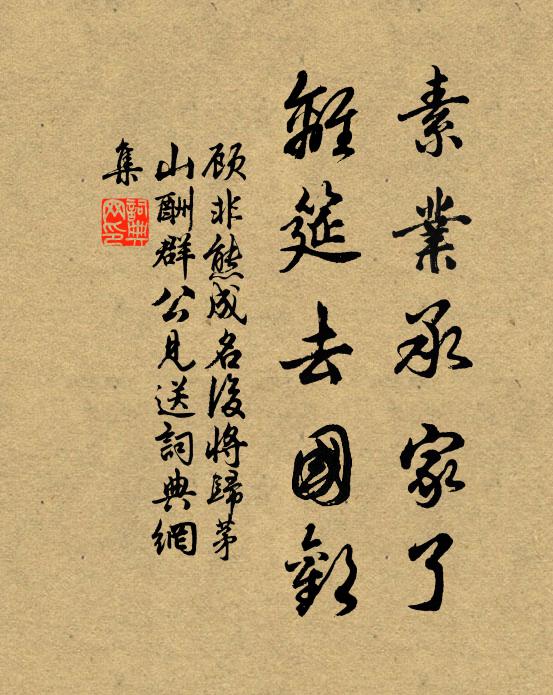 素業承家了
離筵去國歡
顾非熊成名後將歸茅
山酬群公見送詞典網
集
詞典網印